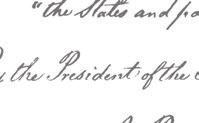 "the States and
the President of the